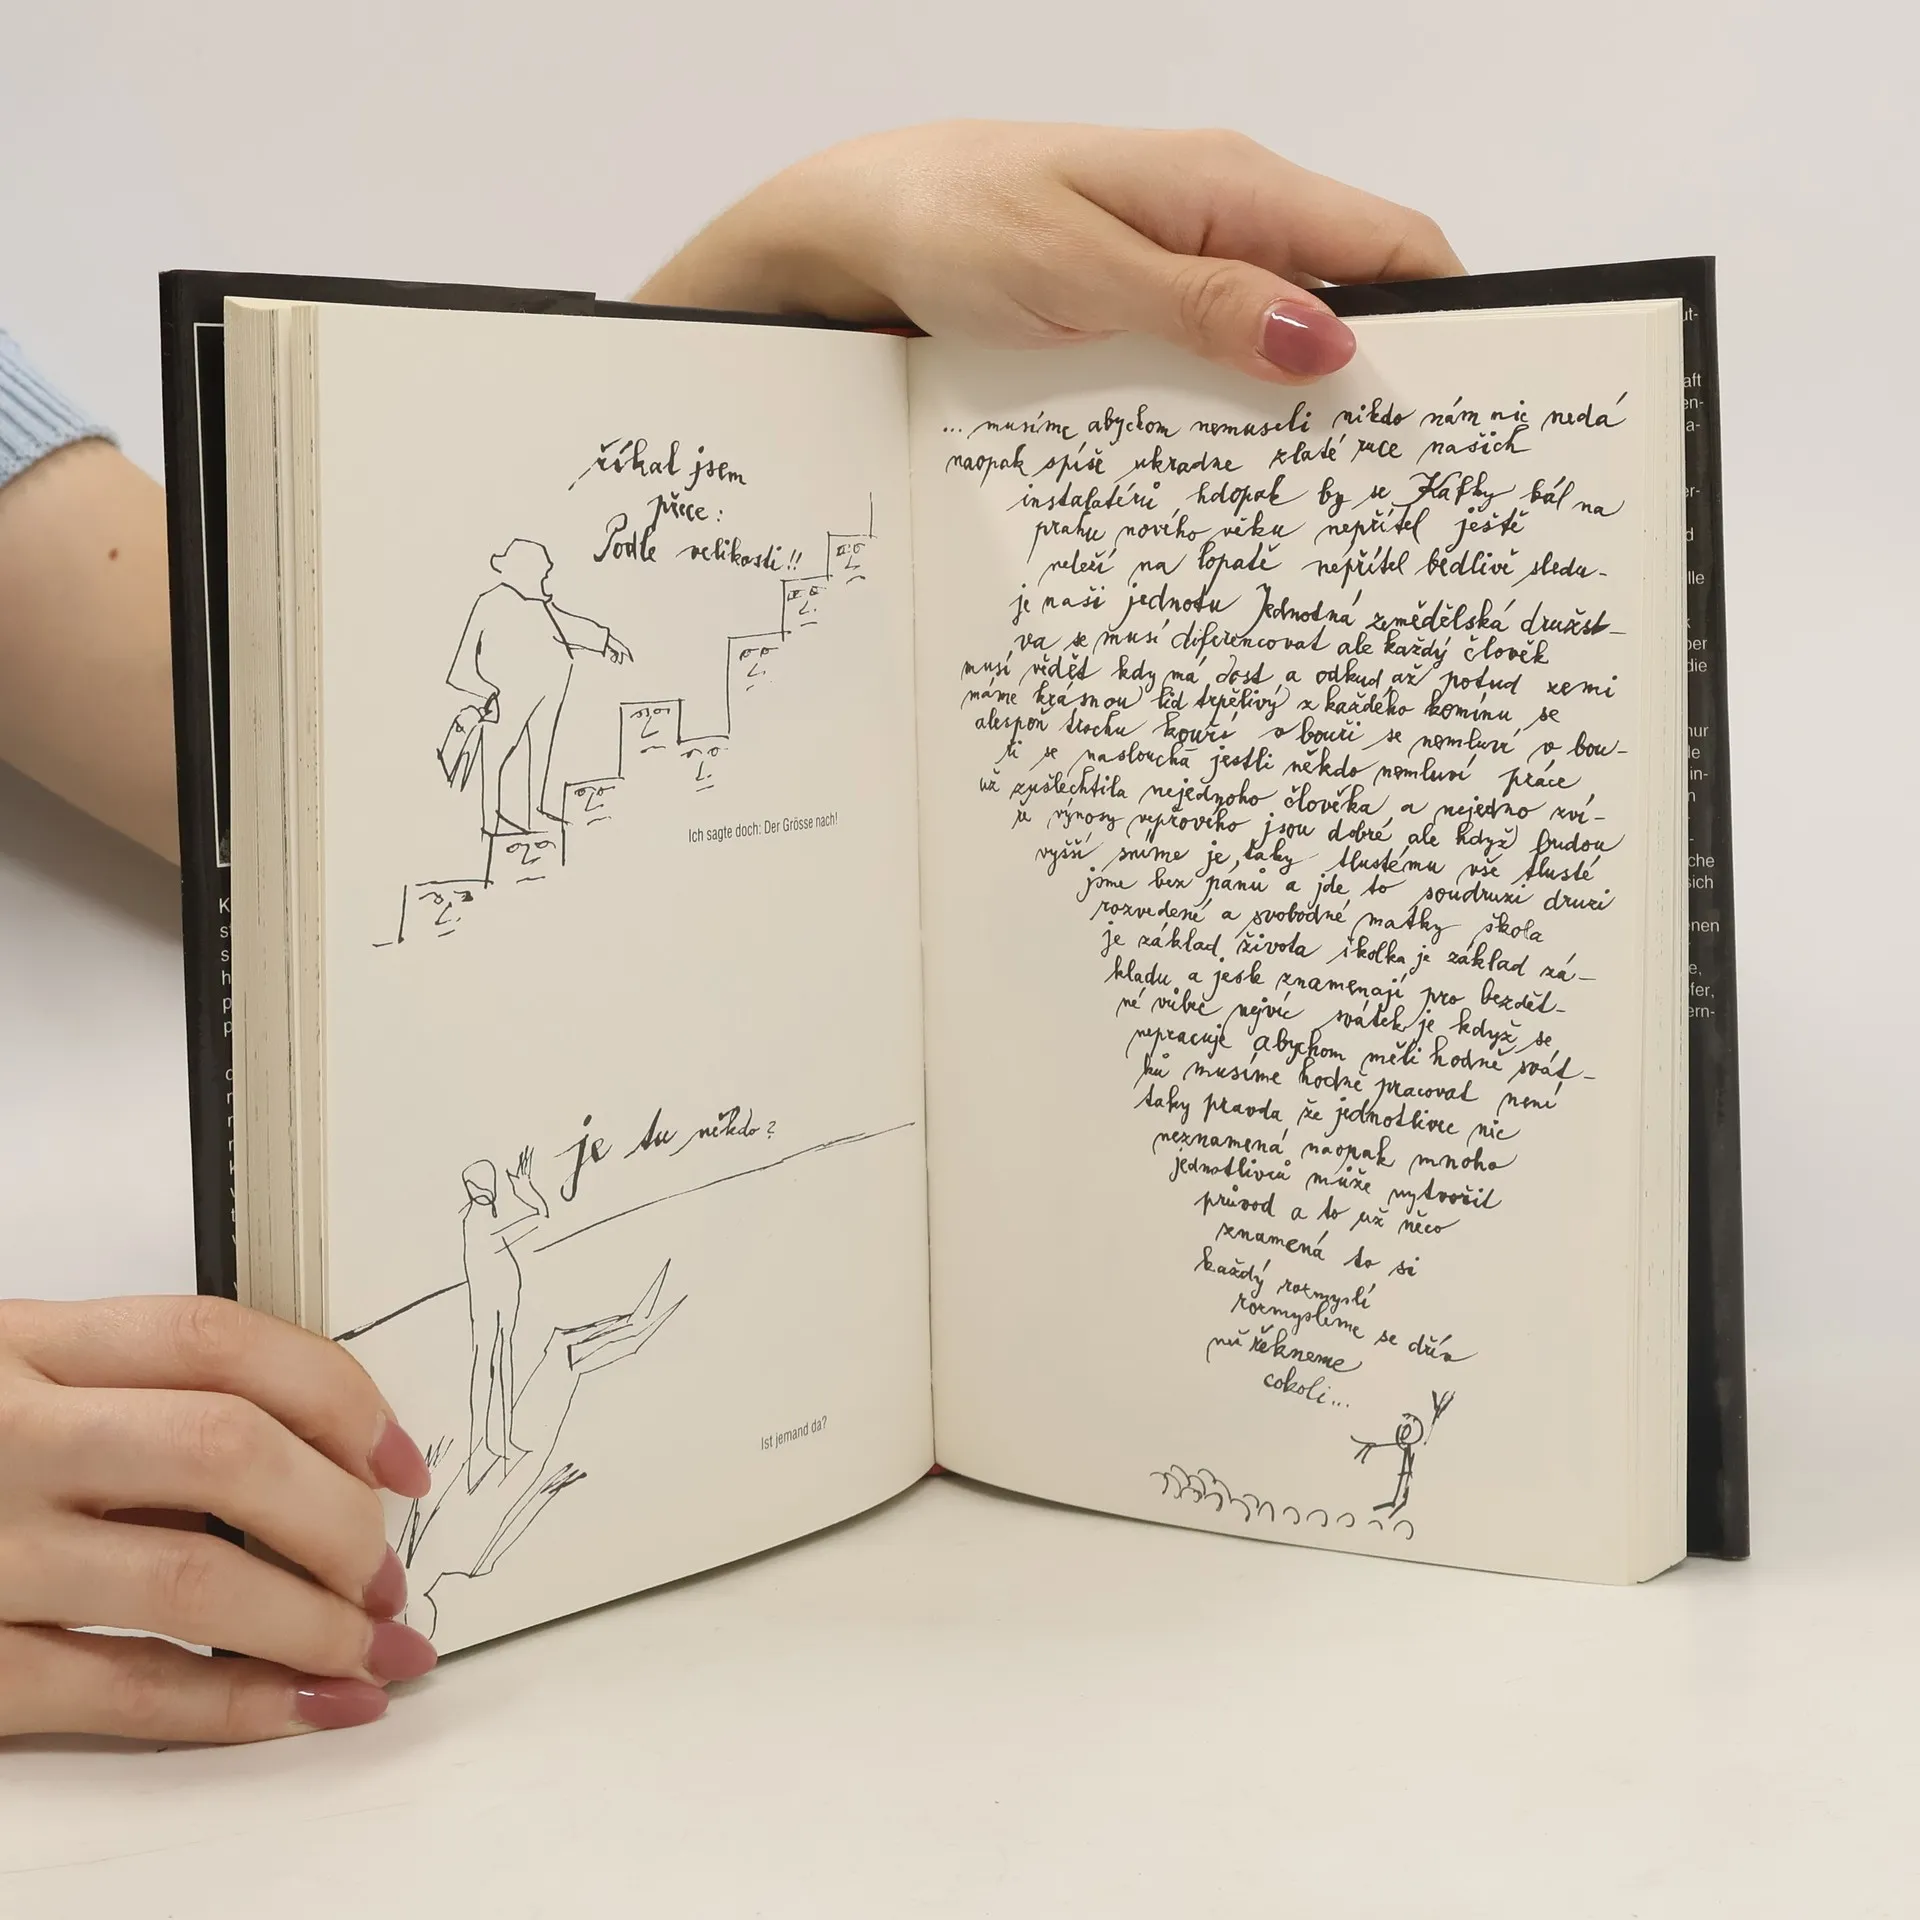 říkal jsem
přece:
Podle velikosti!!
Ich sagte doch: Der Grösse nach!
je tu někdo?
Ist jemand da?
... musíme abychom nemuseli nikdo nám nic nedá
naopak spíše ukradne zlaté ruce našich
instalatérů kdopak by se Kafky bál na
prahu nového věku nepřítel ještě
neleží na lopatě nepřítel bedlivě sledu-
je naši jednotu Jednotná zemědělská družst-
va se musí diferencovat ale každý člověk
musí vědět kdy má dost a odkud až potud zemi
máme krásnou lid trpělivý z každého komínu se
alespoň trochu kouří o bouři se nemluví v bou-
ři se naslouchá jestli někdo nemluví práce
už zušlechtila nejednoho člověka a nejedno zví-
ře výnosy vepřového jsou dobré ale když budou
vyšší sníme je taky tlustému vše tlusté
jsme bez pánů a jde to soudruzi druzi
rozvedené a svobodné matky škola
je základ života školka je základ zá-
kladu a jesle znamenají pro bezdět-
né vůbec nejvíc svátek je když se
nepracuje abychom měli hodně svát-
ků musíme hodně pracovat není
taky pravda že jednotlivec nic
neznamená naopak mnoho
jednotlivců může vytvořit
průvod a to už něco
znamená to si
každý rozmyslí
rozmysleme se dřív
než řekneme
cokoli...